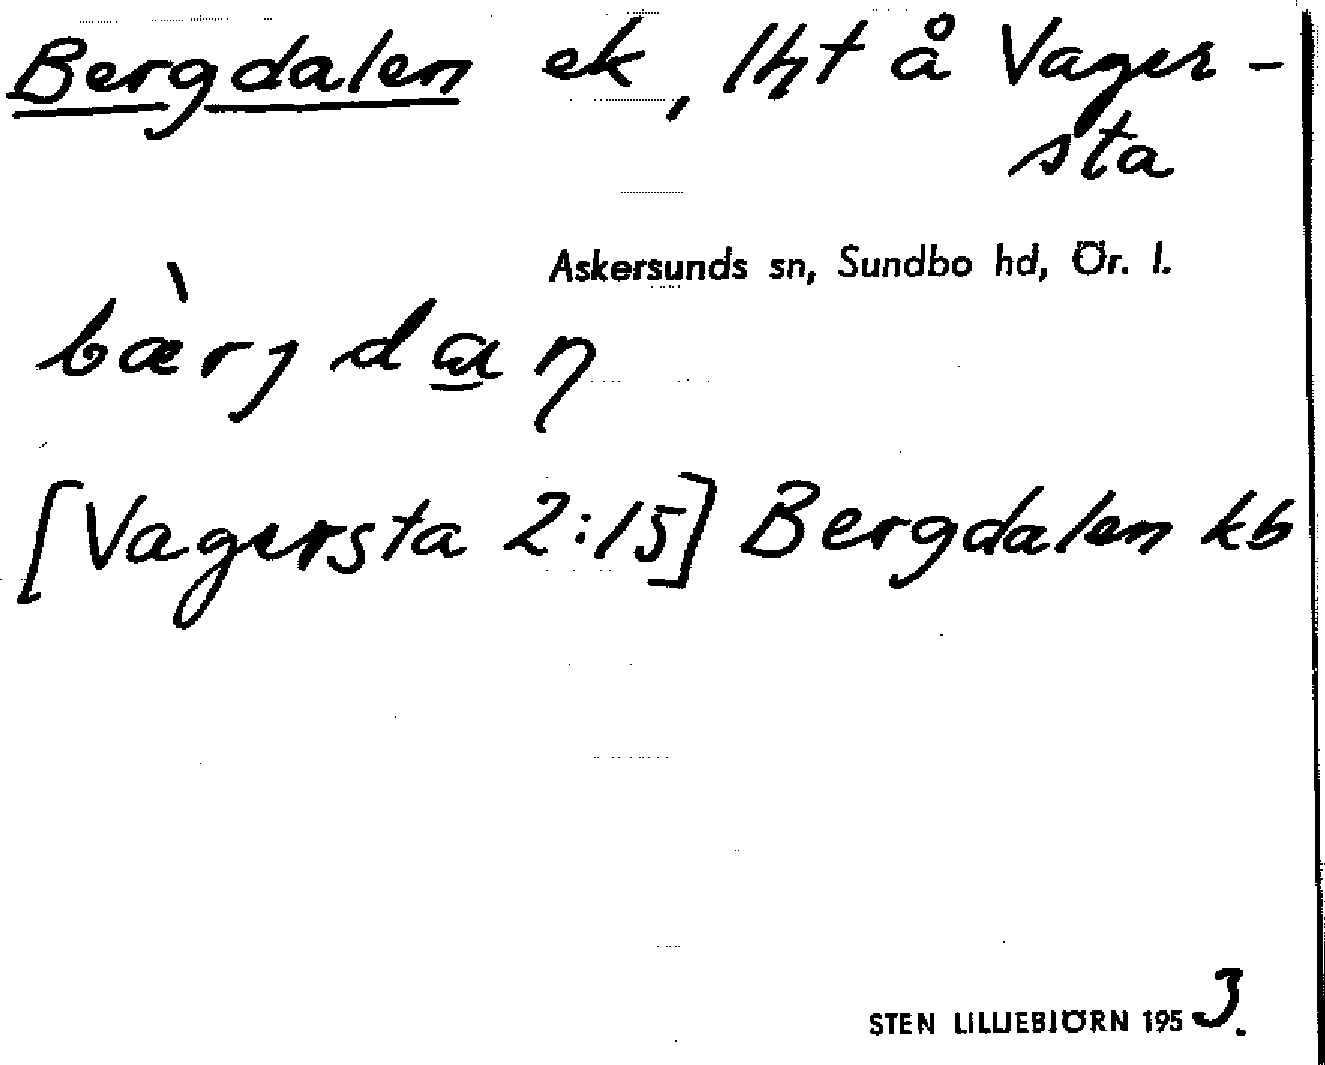 Bergdalen ek, lht å Vager-
sta
Askersunds sn, Sundbo hd, Ör. l.
bæ̀rjdan
[Vagersta 2:15] Bergdalen kb
STEN LILLIEBJÖRN 1953.